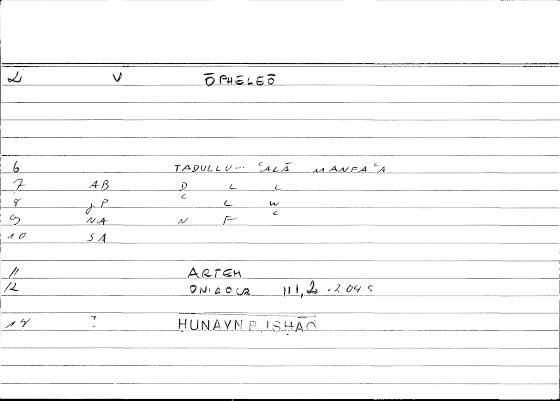 2 V ŌPHELEŌ
6 TADULLU... ʿALĀ MANFAʿA
7 AB D L L
8 JP ʿ L W
9 NA N F ʿ
10 SA
11 ARTEM
12 ONIROCR III, 2 . 204 5
14 ? ḤUNAYN B. ISḤĀQ